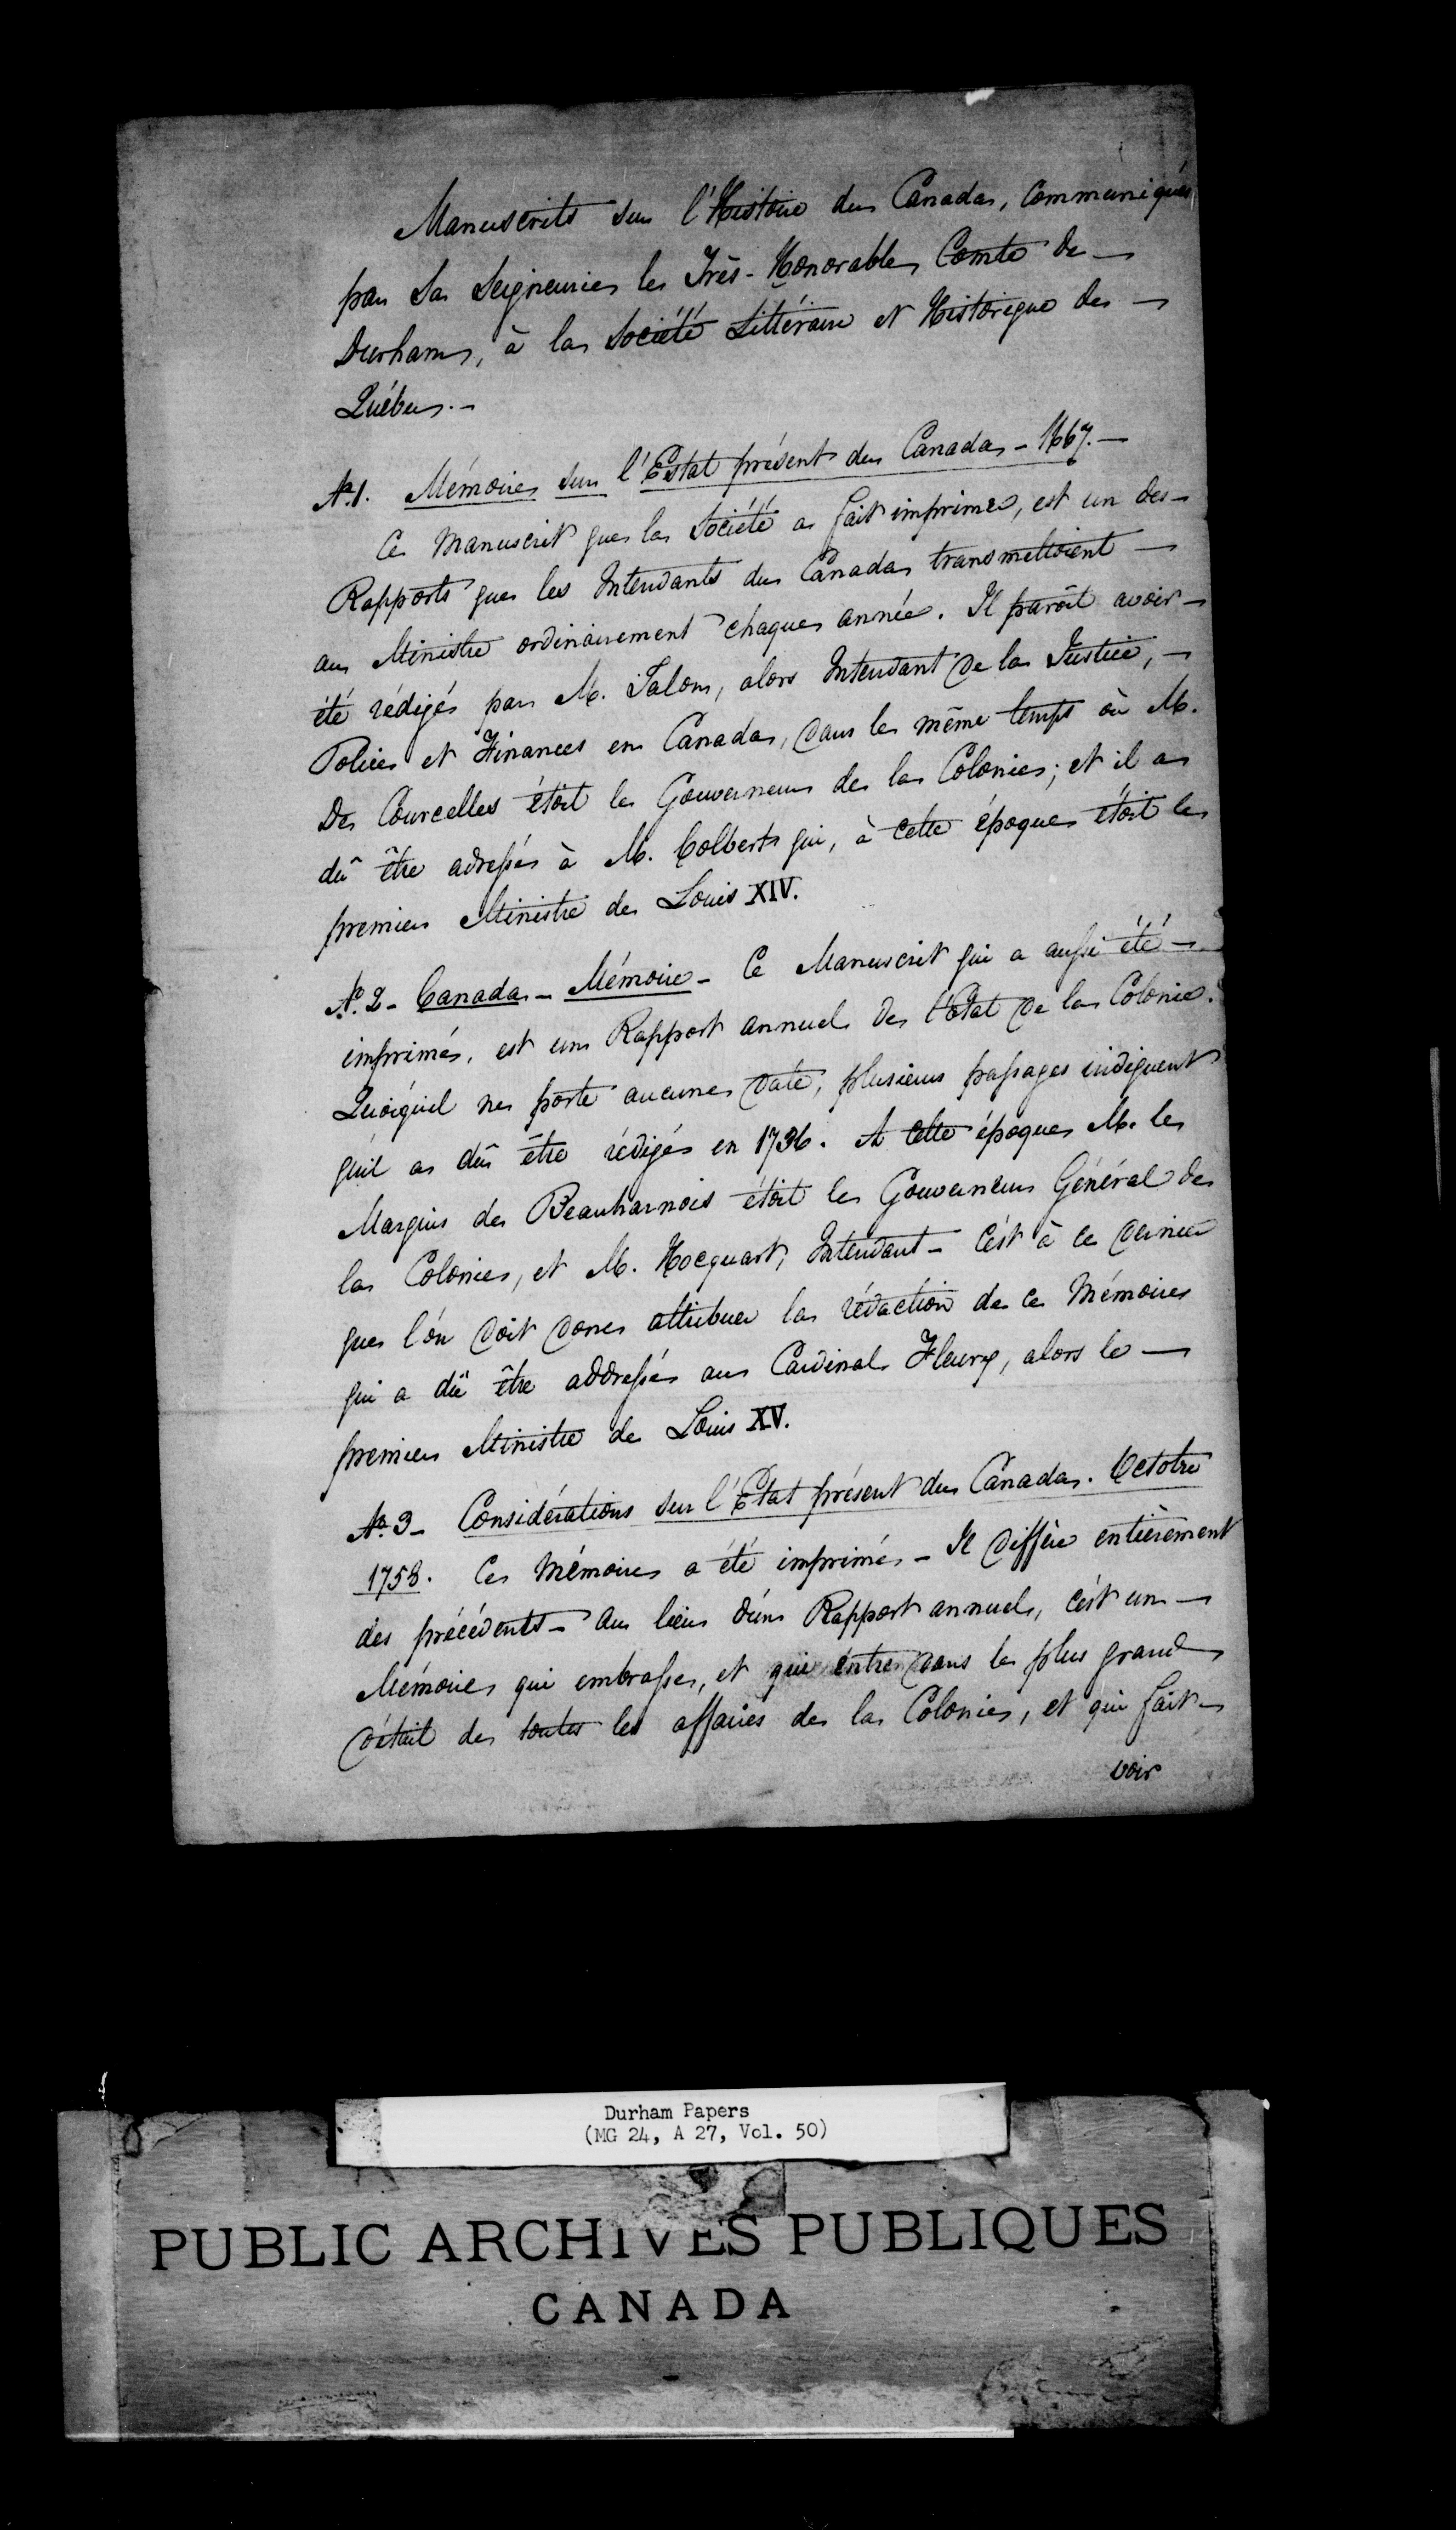 Manuscrits sur l'Histoire du Canada, communiqués
par Sa Seigneurie le Très-Honorable Comte de
Durham, à la Société Littéraire et Historique de
Québec.
No. 1. Mémoire sur l'Estat présent du Canada - 1667.
Ce Manuscrit que la Société a fait imprimer, est un des
Rapports que les Intendants du Canada transmettoient
au Ministre ordinairement chaque année. Il paroît avoir
été rédigé par M. Talon, alors Intendant de la Justice,
Police et Finances en Canada, dans le même temps où M.
De Courcelles étoit le Gouverneur de la Colonie; et il a
dû être adressé à M. Colbert qui, à cette époque étoit le
premier Ministre de Louis XIV.
No. 2 - Canada - Mémoire - Ce Manuscrit qui a aussi été
imprimé, est un Rapport annuel de l'Etat de la Colonie.
Quoiqu'il ne porte aucune date, plusieurs passages indiquent
qu'il a dû être rédigé en 1736. A cette époque M. le
Marquis de Beauharnois étoit le Gouverneur Général de
la Colonie, et M. Hocquart, Intendant - C'est à ce dernier
que l'on doit donc attribuer la rédaction de ce Mémoire
qui a dû être addressé au Cardinal Fleury, alors le
premier Ministre de Louis XV.
No. 3 - Considérations sur l'Etat présent du Canada. Octobre
1758. Ce Mémoire a été imprimé - Il diffère entièrement
des précédents - Au lieu d'un Rapport annuel, c'est un
Mémoire qui embrasse, et qui entre dans le plus grand
détail de toutes les affaires de la Colonie, et qui fait
voir
Durham Papers
(MG 24, A 27, Vol. 50)
PUBLIC ARCHIVES PUBLIQUES
CANADA